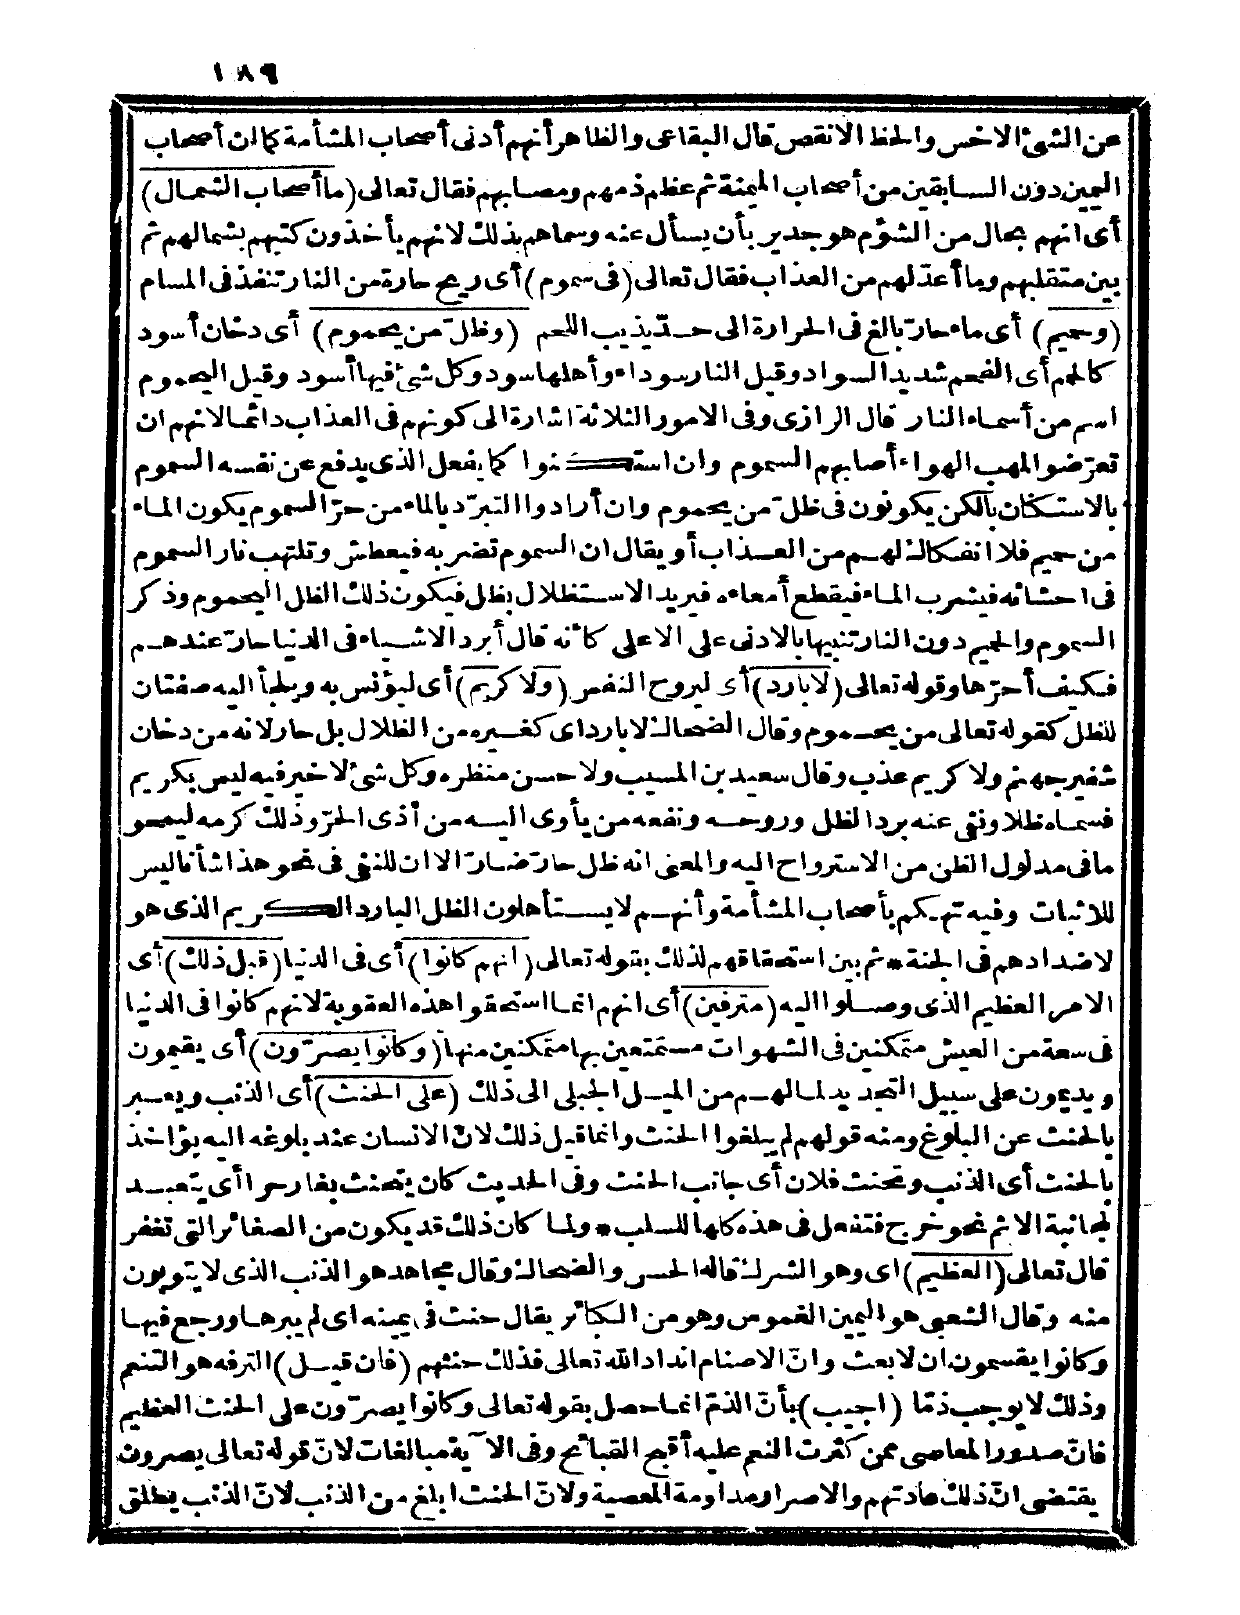 ١٨٩
عن الشئ الاخس والحظ الانقص قال البقاعى والظاهر أنهم أدنى أصحاب المشأمة كما ان أصحاب
اليمين دون السابقين من أصحاب الميمنة ثم عظم ذمهم ومصابهم فقال تعالى (ما أصحاب الشمال)
أى انهم بحال من الشؤم هو جدير بأن يسأل عنه وسماهم بذلك لانهم يأخذون كتبهم بشمالهم ثم
بين متقلبهم وما أعدّ لهم من العذاب فقال تعالى (فى سموم) أى ريح حارة من النار تنفذ فى المسام
(وحميم) أى ماء حارّ بالغ فى الحرارة الى حدّ يذيب اللحم (وظلّ من يحموم) أى دخان أسود
كالحمم أى الفحم شديد السواد وقيل النار سوداء وأهلها سود وكل شئ فيها أسود وقيل اليحموم
اسم من أسماء النار قال الرازى وفى الامور الثلاثة اشارة الى كونهم فى العذاب دائما لانهم ان
تعرّضوا لمهب الهواء أصابهم السموم وان استكنوا كما يفعل الذى يدفع عن نفسه السموم
بالاستكان بالكن يكونون فى ظلّ من يحموم وان أرادوا التبرّد بالماء من حرّ السموم يكون الماء
من حميم فلا انفكاك لهم من العذاب أو يقال ان السموم تضربه فيعطش وتلتهب نار السموم
فى احشائه فيشرب الماء فيقطع أمعاءه فيريد الاستظلال بظل فيكون ذلك الظل اليحموم وذكر
السموم والحميم دون النار تنبيها بالادنى على الاعلى كأنه قال أبرد الاشياء فى الدنيا حارّ عندهم
فكيف أحرّها وقوله تعالى (لا بارد) أى ليروح النفس (ولا كريم) أى ليؤنس به ويلجأ اليه صفتان
للظل كقوله تعالى من يحموم وقال الضحاك لا بارد اى كغيره من الظلال بل حار لانه من دخان
شفير جهنم ولا كريم عذب وقال سعيد بن المسيب ولا حسن منظره وكل شئ لا خير فيه ليس بكريم
فسماه ظلا ونفى عنه برد الظل وروحه ونفعه من يأوى اليه من أذى الحرّ وذلك كرمه ليمحو
ما فى مدلول الظن من الاسترواح اليه والمعنى انه ظل حارّ ضارّ الا ان للنفى فى نحو هذا شأنا ليس
للاثبات وفيه تهكم بأصحاب المشأمة وأنهم لا يستأهلون الظل البارد الكريم الذى هو
لاضدادهم فى الجنة * ثم بين استحقاقهم لذلك بقوله تعالى (انهم كانوا) أى فى الدنيا (قبل ذلك) أى
الامر العظيم الذى وصلوا اليه (مترفين) أى انهم انما استحقوا هذه العقوبة لانهم كانوا فى الدنيا
فى سعة من العيش متمكنين فى الشهوات مستمتعين بها متمكنين منها (وكانوا يصرّون) أى يقيمون
ويديمون على سبيل التجديد لما لهم من الميل الجبلى الى ذلك (على الحنث) أى الذنب ويعبر
بالحنث عن البلوغ ومنه قولهم لم يبلغوا الحنث وانما قيل ذلك لانّ الانسان عند بلوغه اليه يؤاخذ
بالحنث أى الذنب وتحنث فلان أى جانب الحنث وفى الحديث كان يتحنث بغار حرا أى يتعبد
لمجانبة الاثم نحو خرج فتفعل فى هذه كلها للسلب * ولما كان ذلك قد يكون من الصغائر التى تغفر
قال تعالى (العظيم) اى وهو الشرك قاله الحسن والضحاك وقال مجاهد هو الذنب الذى لا يتوبون
منه وقال الشعبى هو اليمين الغموس وهو من الكبائر يقال حنث فى يمينه اى لم يبرها ورجع فيها
وكانوا يقسمون ان لا بعث وانّ الاصنام انداد الله تعالى فذلك حنثهم (فان قيل) الترفه هو التنعم
وذلك لا يوجب ذمّا (اجيب) بأنّ الذمّ انما حصل بقوله تعالى وكانوا يصرّون على الحنث العظيم
فانّ صدور المعاصى ممن كثرت النعم عليه أقبح القبائح وفى الآية مبالغات لانّ قوله تعالى يصرون
يقتضى انّ ذلك عادتهم والاصرار مداومة المعصية ولانّ الحنث ابلغ من الذنب لانّ الذنب يطلق